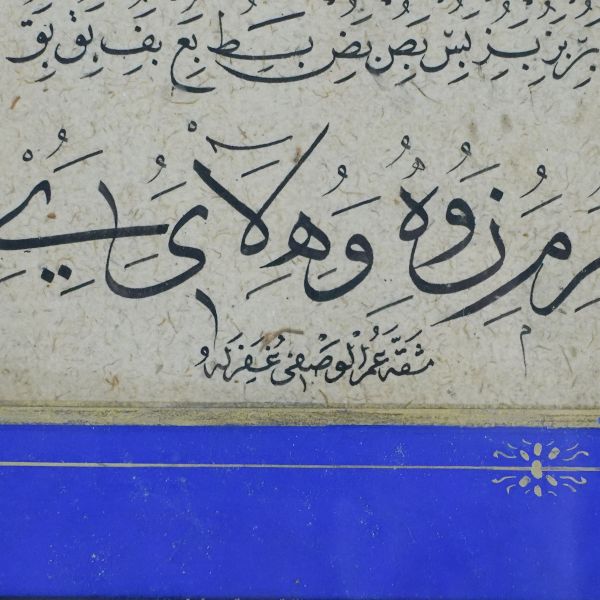 بر بز بز بس بص بض بط بع بف بق بق
ر مر ز وه وه لا ى ے
مشقه عمر الوصفى غفر له